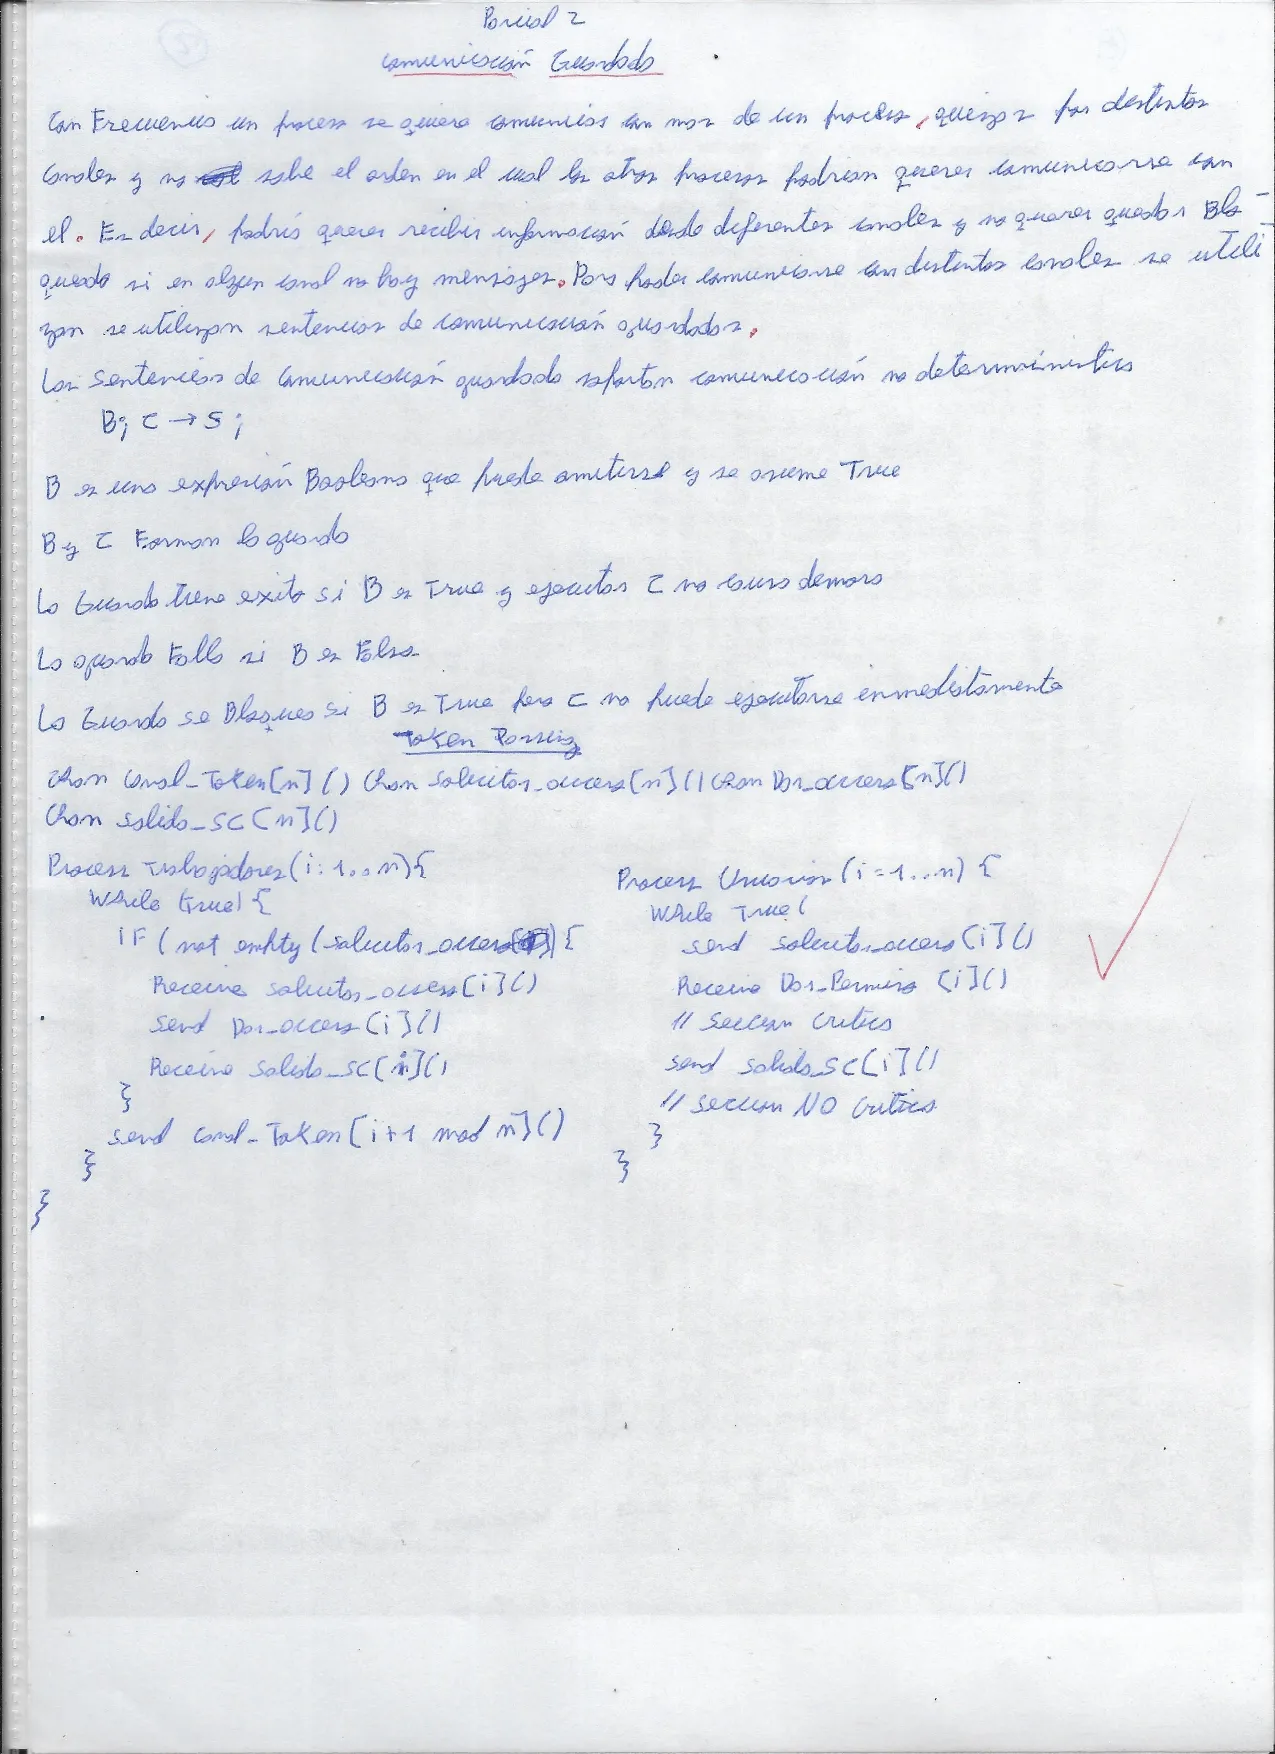 Parcial 2
Comunicación Guardada
Con Frecuencia un proceso se quiere comunicar con mas de un proceso, quizas por distintos
canales y no sabe el orden en el cual los otros procesos podrian querer comunicarse con
el. Es decir, podria querer recibir información desde diferentes canales y no querer quedar Blo-
queado si en algun canal no hay mensajes. Para poder comunicarse con distintos canales se utili
zan se utilizan sentencias de comunicación guardadas.
Las Sentencias de Comunicación guardada soportan comunicación no deterministica
B; C → S;
B es una expresión Booleana que puede omitirse y se asume True
B y C Forman la guarda
La Guarda tiene exito si B es True y ejecutar C no causa demora
La guarda Falla si B es Falsa
La Guarda se Bloquea si B es True pero C no puede ejecutarse inmediatamente
Token Passing
Chan Canal_Token[n]() Chan Solicitar_acceso[n]() Chan Dar_acceso[n]()
Chan salida_SC[n]()
Process Trabajadores(i:1..n){
While (true) {
IF (not empty (solicitar_acceso[i]) {
Receive solicitar_acceso[i]()
Send Dar_acceso[i]()
Receive Salida_SC[i]()
}
send Canal_Token[i+1 mod n]()
}
}
Process Usuarios(i=1..n) {
While True (
send solicitar_acceso[i]()
Receive Dar_Permiso[i]()
// Seccion Critica
send salida_SC[i]()
// seccion NO Critica
}
}